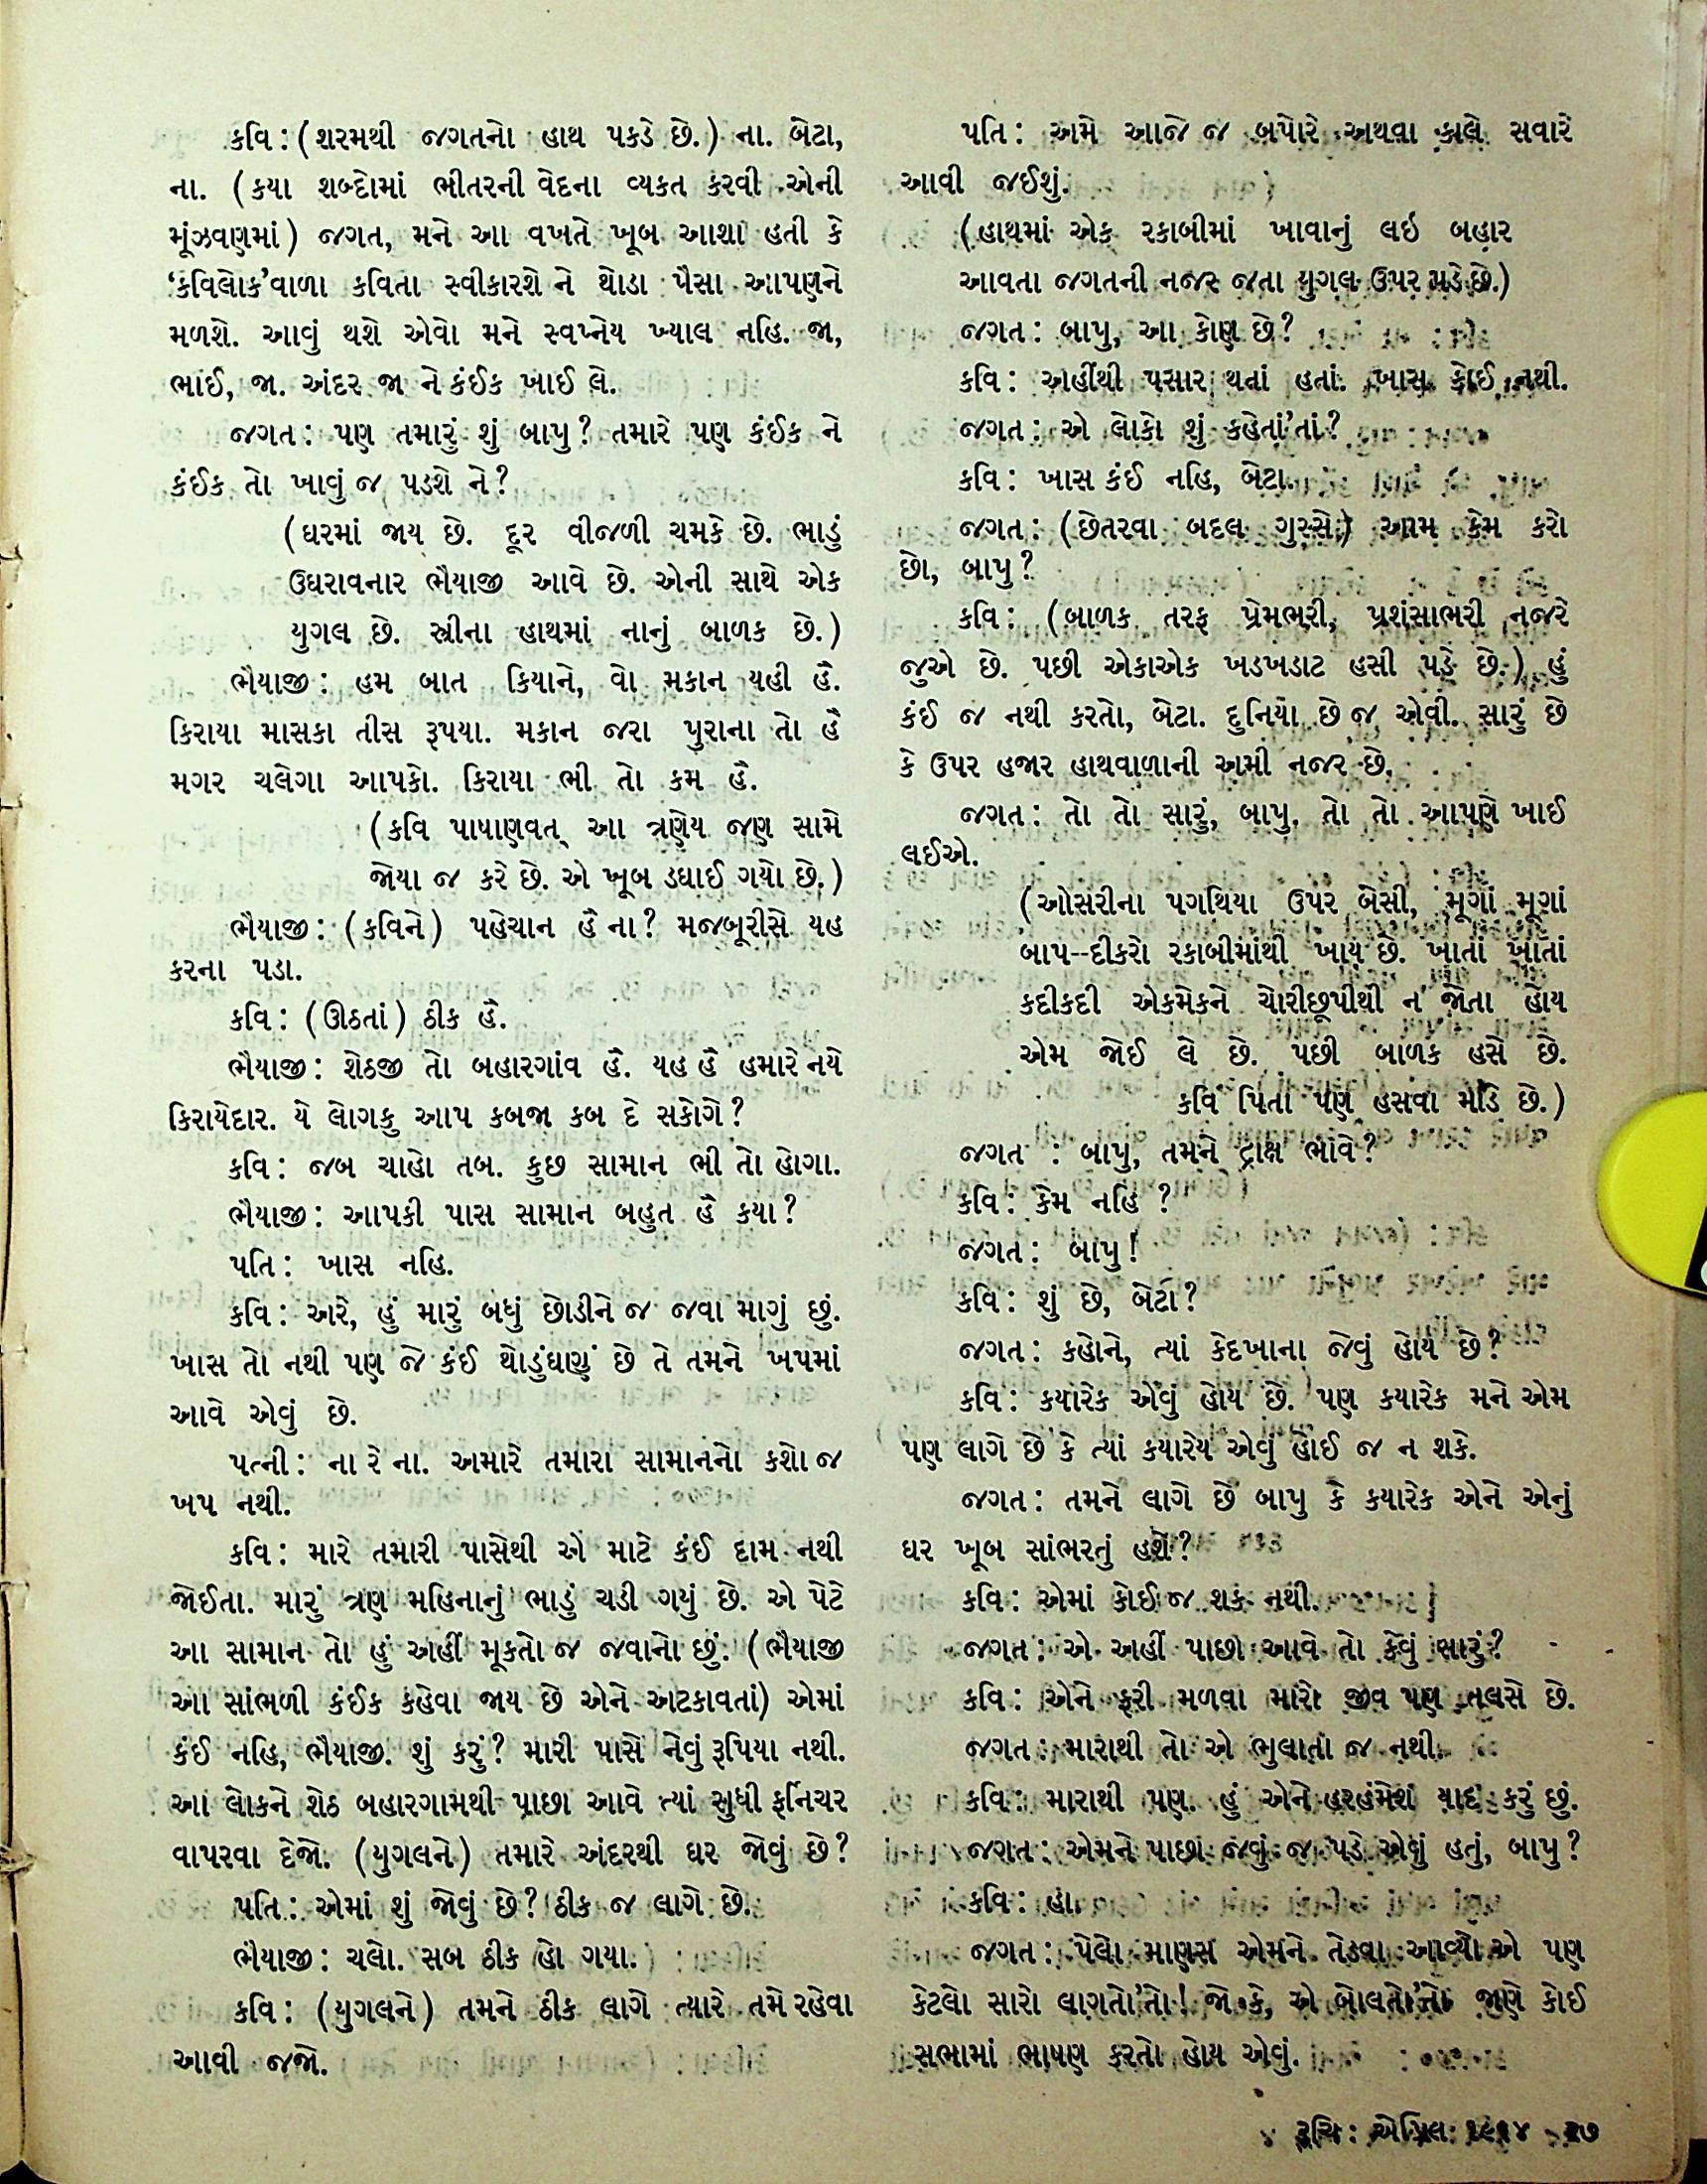 કવિ: (શરમથી જગતનો હાથ પકડે છે.) ના. બેટા,
ના. (કયા શબ્દોમાં ભીતરની વેદના વ્યકત કરવી એની
મૂંઝવણમાં) જગત, મને આ વખતે ખૂબ આશા હતી કે
‘કવિલોક’વાળા કવિતા સ્વીકારશે ને થોડા પૈસા આપણને
મળશે. આવું થશે એવો મને સ્વપ્નેય ખ્યાલ નહિ. જા,
ભાઈ, જા. અંદર જા ને કંઈક ખાઈ લે.
જગત: પણ તમારું શું બાપુ? તમારે પણ કંઈક ને
કંઈક તો ખાવું જ પડશે ને?
(ઘરમાં જાય છે. દૂર વીજળી ચમકે છે. ભાડું
ઉઘરાવનાર ભૈયાજી આવે છે. એની સાથે એક
યુગલ છે. સ્ત્રીના હાથમાં નાનું બાળક છે.)
ભૈયાજી: હમ બાત કિયાને, વો મકાન યહી હૈ.
કિરાયા માસકા તીસ રૂપયા. મકાન જરા પુરાના તો હૈ
મગર ચલેગા આપકો. કિરાયા ભી તો કમ હૈ.
(કવિ પાષાણવત્ આ ત્રણેય જણ સામે
જોયા જ કરે છે. એ ખૂબ ડઘાઈ ગયો છે.)
ભૈયાજી: (કવિને) પહેચાન હૈ ના? મજબૂરીસે યહ
કરના પડા.
કવિ: (ઊઠતાં) ઠીક હૈ.
ભૈયાજી: શેઠજી તો બહારગાંવ હૈ. યહ હૈ હમારે નયે
કિરાયેદાર. યે લોગકુ આપ કબજા કબ દે સકોગે?
કવિ: જબ ચાહો તબ. કુછ સામાન ભી તો હોગા.
ભૈયાજી: આપકી પાસ સામાન બહુત હૈ કયા?
પતિ: ખાસ નહિ.
કવિ: અરે, હું મારું બધું છોડીને જ જવા માગું છું.
ખાસ તો નથી પણ જે કંઈ થોડુંઘણું છે તે તમને ખપમાં
આવે એવું છે.
પત્ની: ના રે ના. અમારે તમારા સામાનનો કશો જ
ખપ નથી.
કવિ: મારે તમારી પાસેથી એ માટે કંઈ દામ નથી
જોઈતા. મારું ત્રણ મહિનાનું ભાડું ચડી ગયું છે. એ પેટે
આ સામાન તો હું અહીં મૂકતો જ જવાનો છું. (ભૈયાજી
આ સાંભળી કંઈક કહેવા જાય છે એને અટકાવતાં) એમાં
કંઈ નહિ, ભૈયાજી. શું કરું? મારી પાસે નેવું રૂપિયા નથી.
આ લોકને શેઠ બહારગામથી પાછા આવે ત્યાં સુધી ફર્નિચર
વાપરવા દેજો. (યુગલને) તમારે અંદરથી ઘર જોવું છે?
પતિ: એમાં શું જોવું છે? ઠીક જ લાગે છે.
ભૈયાજી: ચલો. સબ ઠીક હો ગયા.
કવિ: (યુગલને) તમને ઠીક લાગે ત્યારે તમે રહેવા
આવી જજો.
પતિ: અમે આજે જ બપોરે અથવા કાલે સવારે
આવી જઈશું.
(હાથમાં એક રકાબીમાં ખાવાનું લઇ બહાર
આવતા જગતની નજર જતા યુગલ ઉપર પડે છે.)
જગત: બાપુ, આ કોણ છે?
કવિ: અહીંથી પસાર થતાં હતાં. ખાસ કોઈ નથી.
જગત: એ લોકો શું કહેતાં’તાં?
કવિ: ખાસ કંઈ નહિ, બેટા.
જગત: (છેતરવા બદલ ગુસ્સે) આમ કેમ કરો
છો, બાપુ?
કવિ: (બાળક તરફ પ્રેમભરી, પ્રશંસાભરી નજરે
જુએ છે. પછી એકાએક ખડખડાટ હસી પડે છે.) હું
કંઈ જ નથી કરતો, બેટા. દુનિયા છે જ એવી. સારું છે
કે ઉપર હજાર હાથવાળાની અમી નજર છે.
જગત: તો તો સારું, બાપુ. તો તો આપણે ખાઈ
લઈએ.
(ઓસરીના પગથિયા ઉપર બેસી, મૂગાં મૂગાં
બાપ--દીકરો રકાબીમાંથી ખાય છે. ખાતાં ખાતાં
કદીકદી એકમેકને ચોરીછૂપીથી ન જોતા હોય
એમ જોઈ લે છે. પછી બાળક હસે છે.
કવિ પિતા પણ હસવા માંડે છે.)
જગત : બાપુ, તમને દ્રાક્ષ ભાવે?
કવિ: કેમ નહિ ?
જગત: બાપુ!
કવિ: શું છે, બેટા?
જગત: કહોને, ત્યાં કેદખાના જેવું હોય છે?
કવિ: કયારેક એવું હોય છે. પણ કયારેક મને એમ
પણ લાગે છે કે ત્યાં કયારેય એવું હોઈ જ ન શકે.
જગત: તમને લાગે છે બાપુ કે કયારેક એને એનું
ઘર ખૂબ સાંભરતું હશે?
કવિ: એમાં કોઈ જ શક નથી.
જગત: એ અહીં પાછો આવે તો કેવું સારું?
કવિ: એને ફરી મળવા મારો જીવ પણ તલસે છે.
જગત: મારાથી તો એ ભુલાતો જ નથી.
કવિ: મારાથી પણ. હું એને હરહંમેશ યાદ કરું છું.
જગત: એમને પાછા જવું જ પડે એવું હતું, બાપુ?
કવિ: હા.
જગત: પેલો માણસ એમને તેડવા આવ્યો એ પણ
કેટલો સારો લાગતો’તો! જો કે, એ બોલતો’તો જાણે કોઈ
સભામાં ભાષણ કરતો હોય એવું.
રુચિ: એપ્રિલ ૧૯૬૪ ૨૭